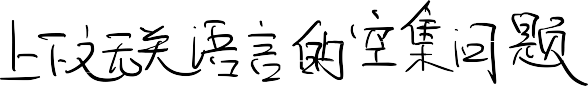 上下文无关语言的空集问题